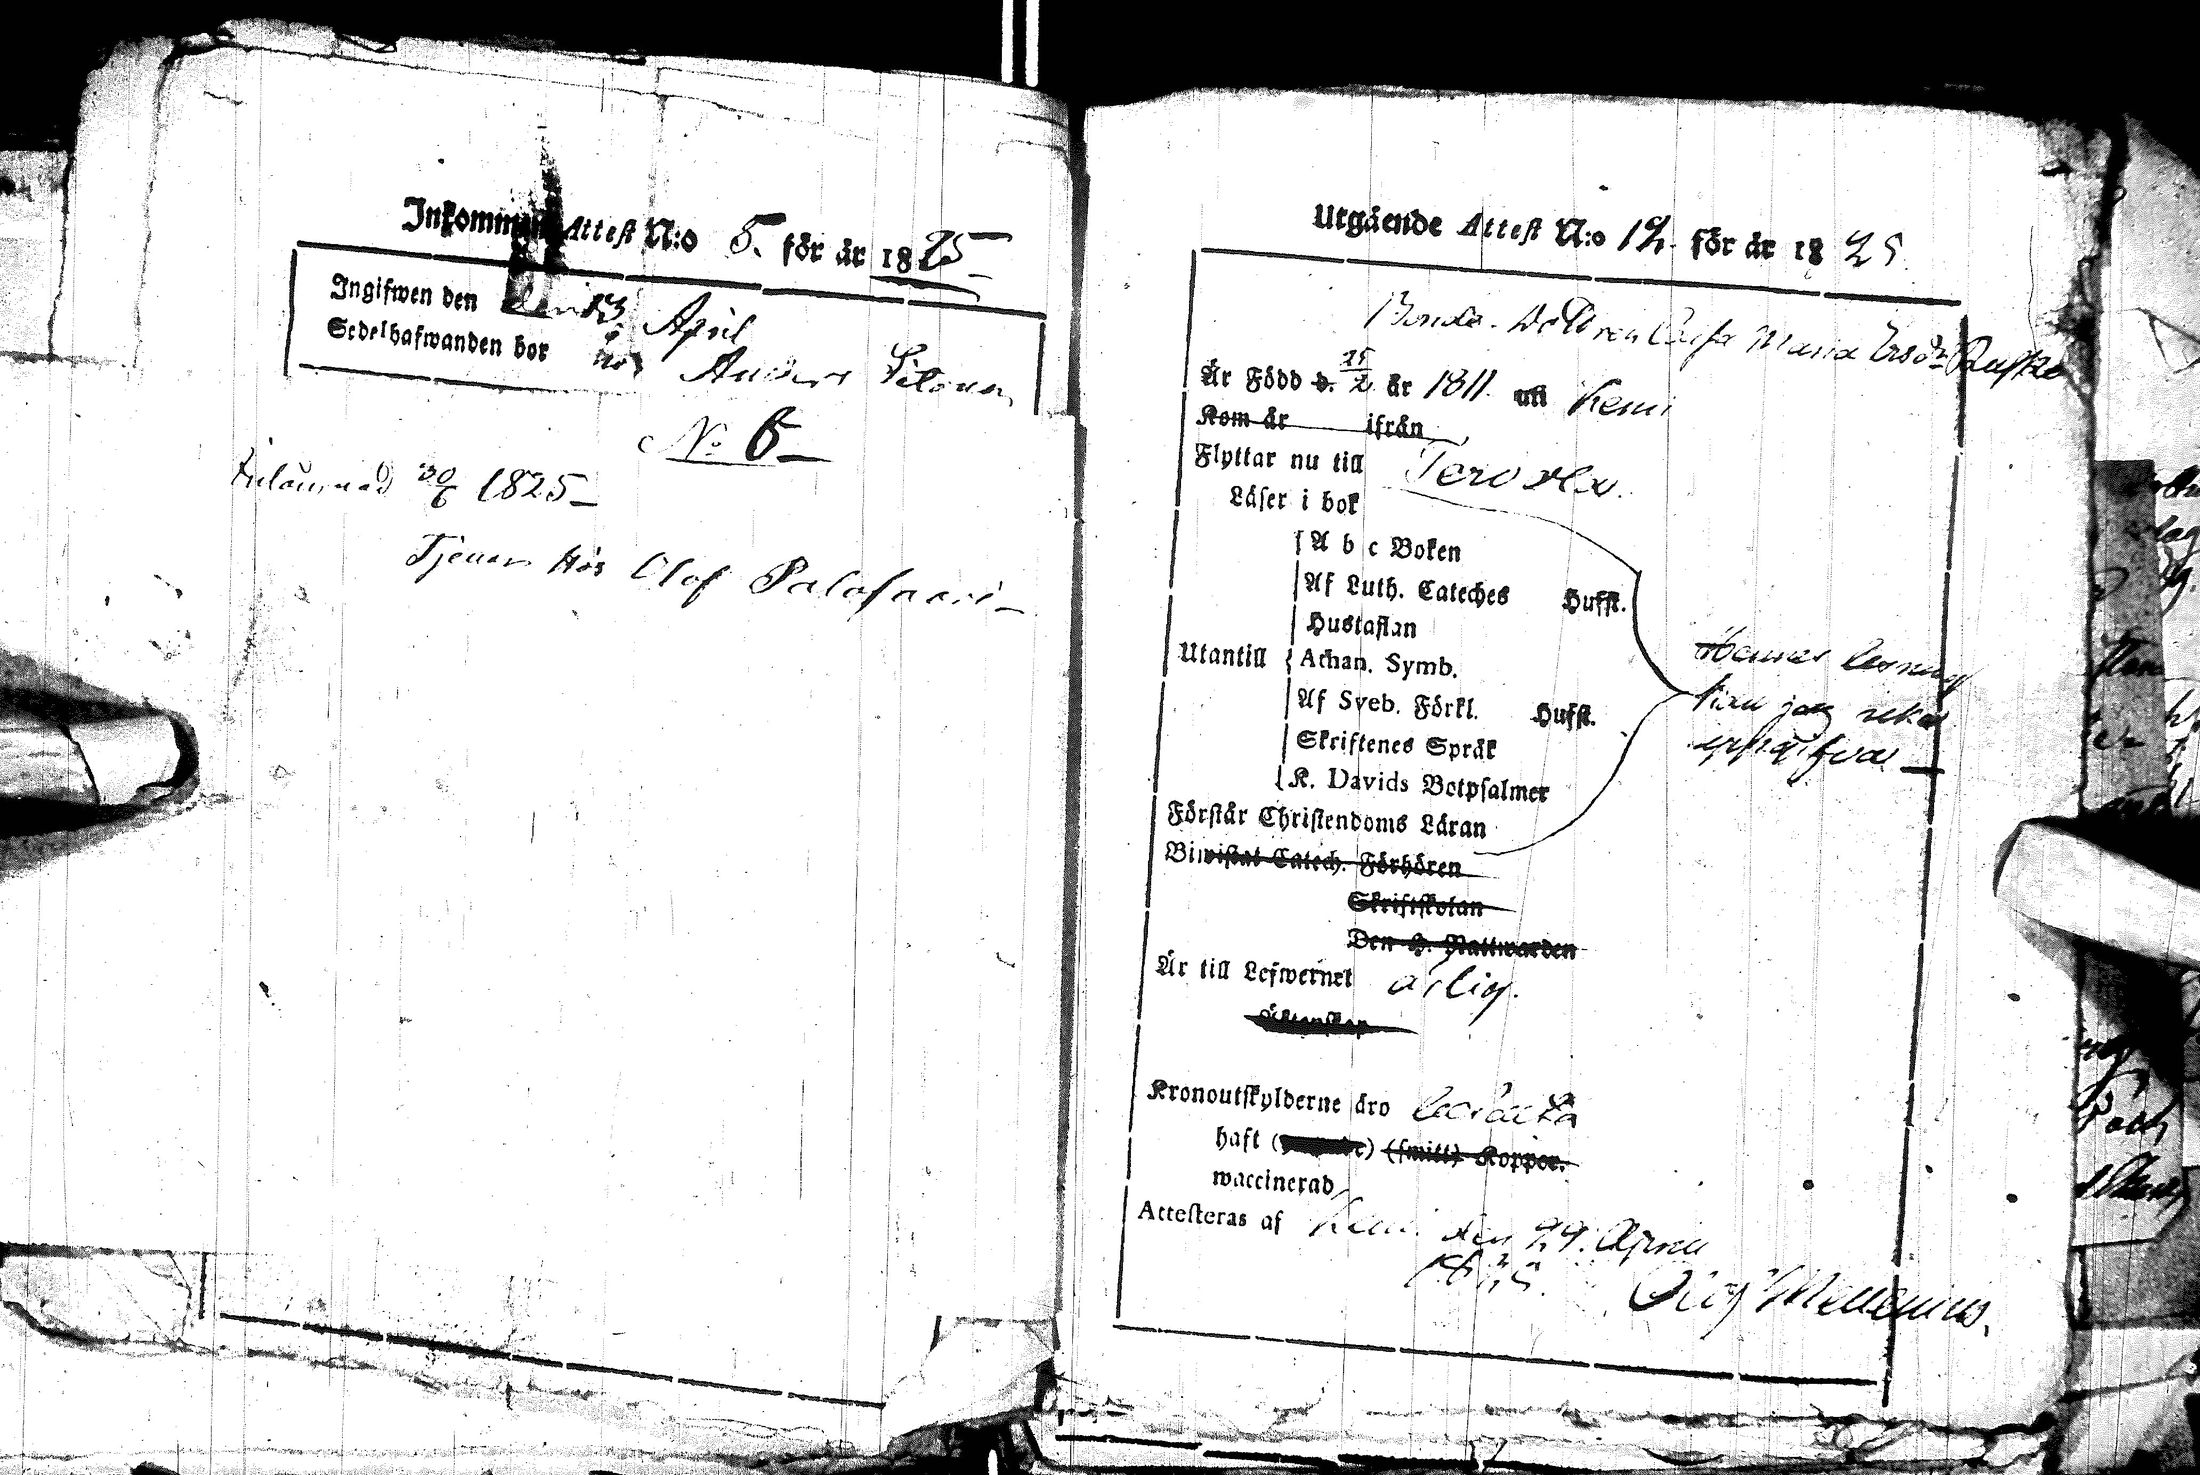 Inkommen Attest N:o 5. för år 1825
Ingifwen den 13 April
Sedelhafwanden bor hos Anders
No 6
30/6 1825
Tjenar hos Olof Palosaari
Utgående Attest N:o 12. för år 1825
Bonde Dottren Caisa Maria Ersdr
Är Född d. 25/2 år 1811. uti Kemi
Kom år ifrån
Flyttar nu till Tervola.
Läser i bok
A b c Boken
Af Luth. Cateches Hufst.
Hustaflan
Utantill Athan. Symb.
Af Sveb. Förkl. Hufst.
Skriftenes Språk
K. Davids Botpsalmer
Hennes läsning
kan jag icke
uppgifva
Förstår Christendoms Läran
Biwistat Catech. Förhören
Skriftskolan
Den H. Nattwarden
Är till Lefwernet ärlig.
Äktenskap
Kronoutskylderne äro betalta
haft (smitt) Koppor.
waccinerad
Attesteras af Kemi den 29. April
1825.
Olof Mellenius.